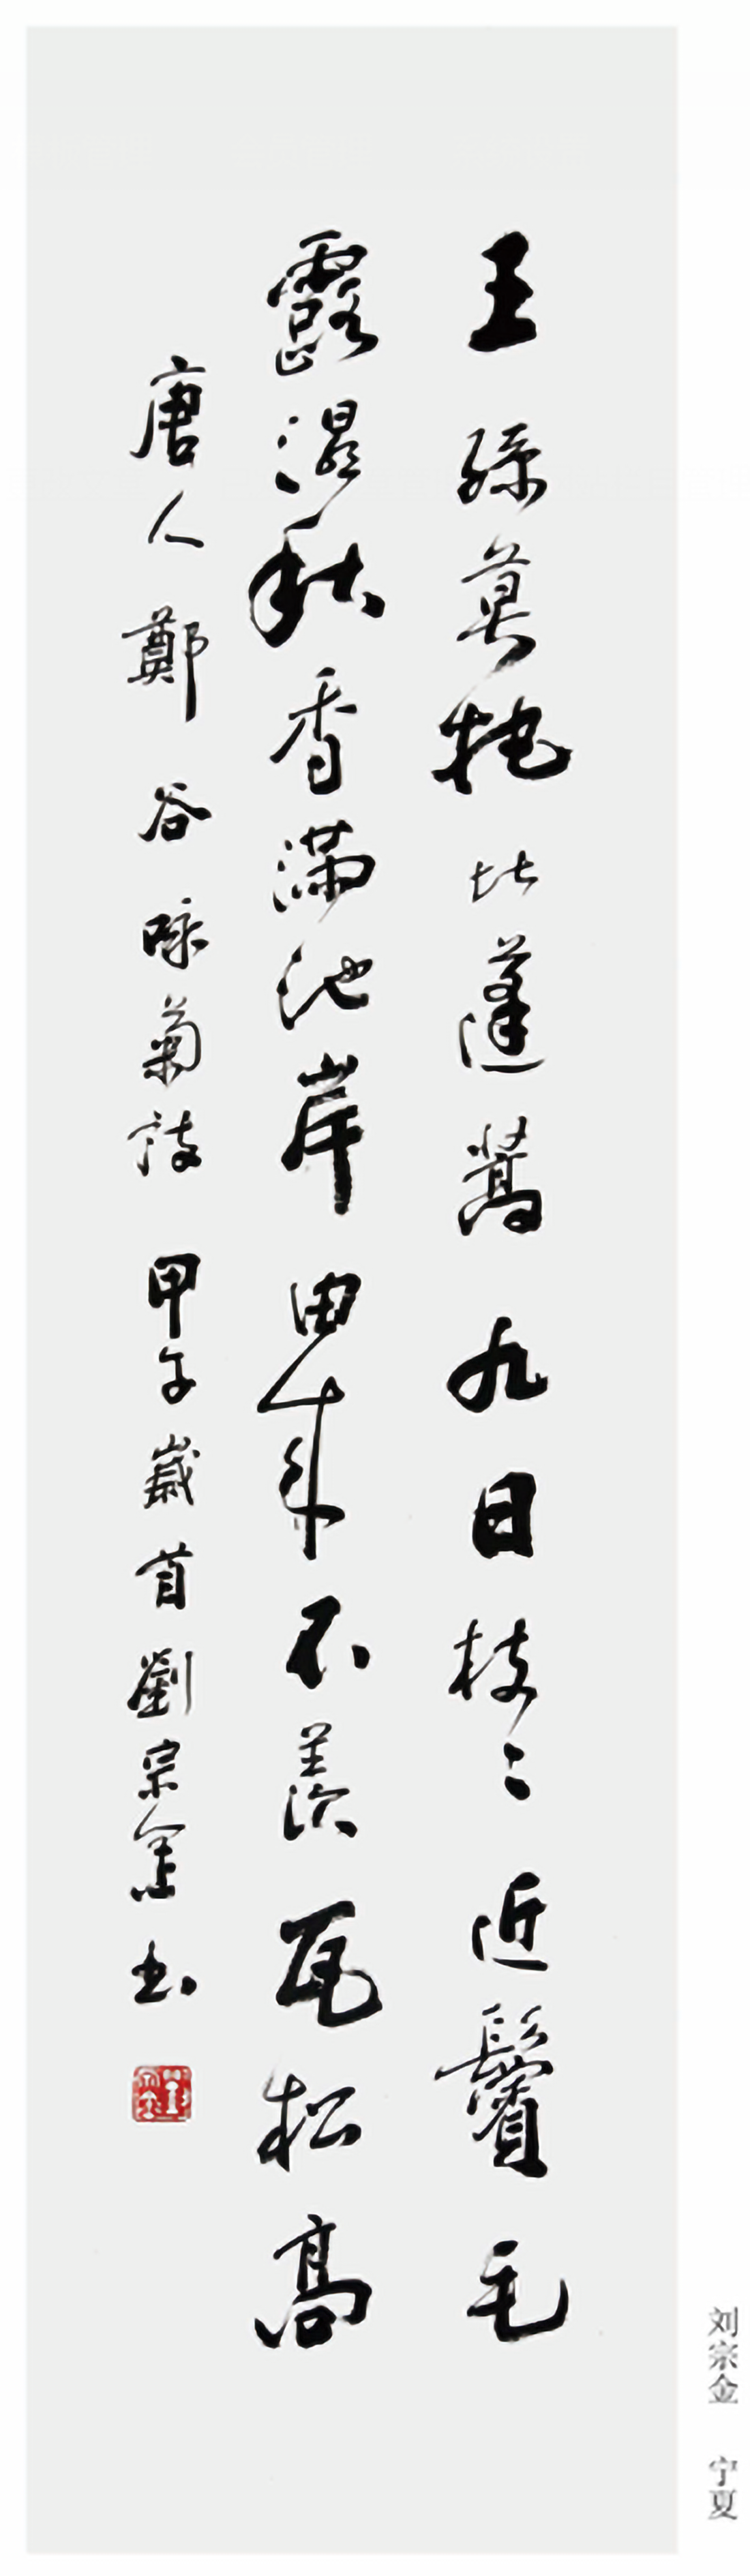 王孫莫把比蓬蒿九日枝〻近鬢毛
露濕秋香滿池岸由來不羡瓦松高
唐人鄭谷咏菊詩 甲午歲首劉宗金书
刘宗金 宁夏